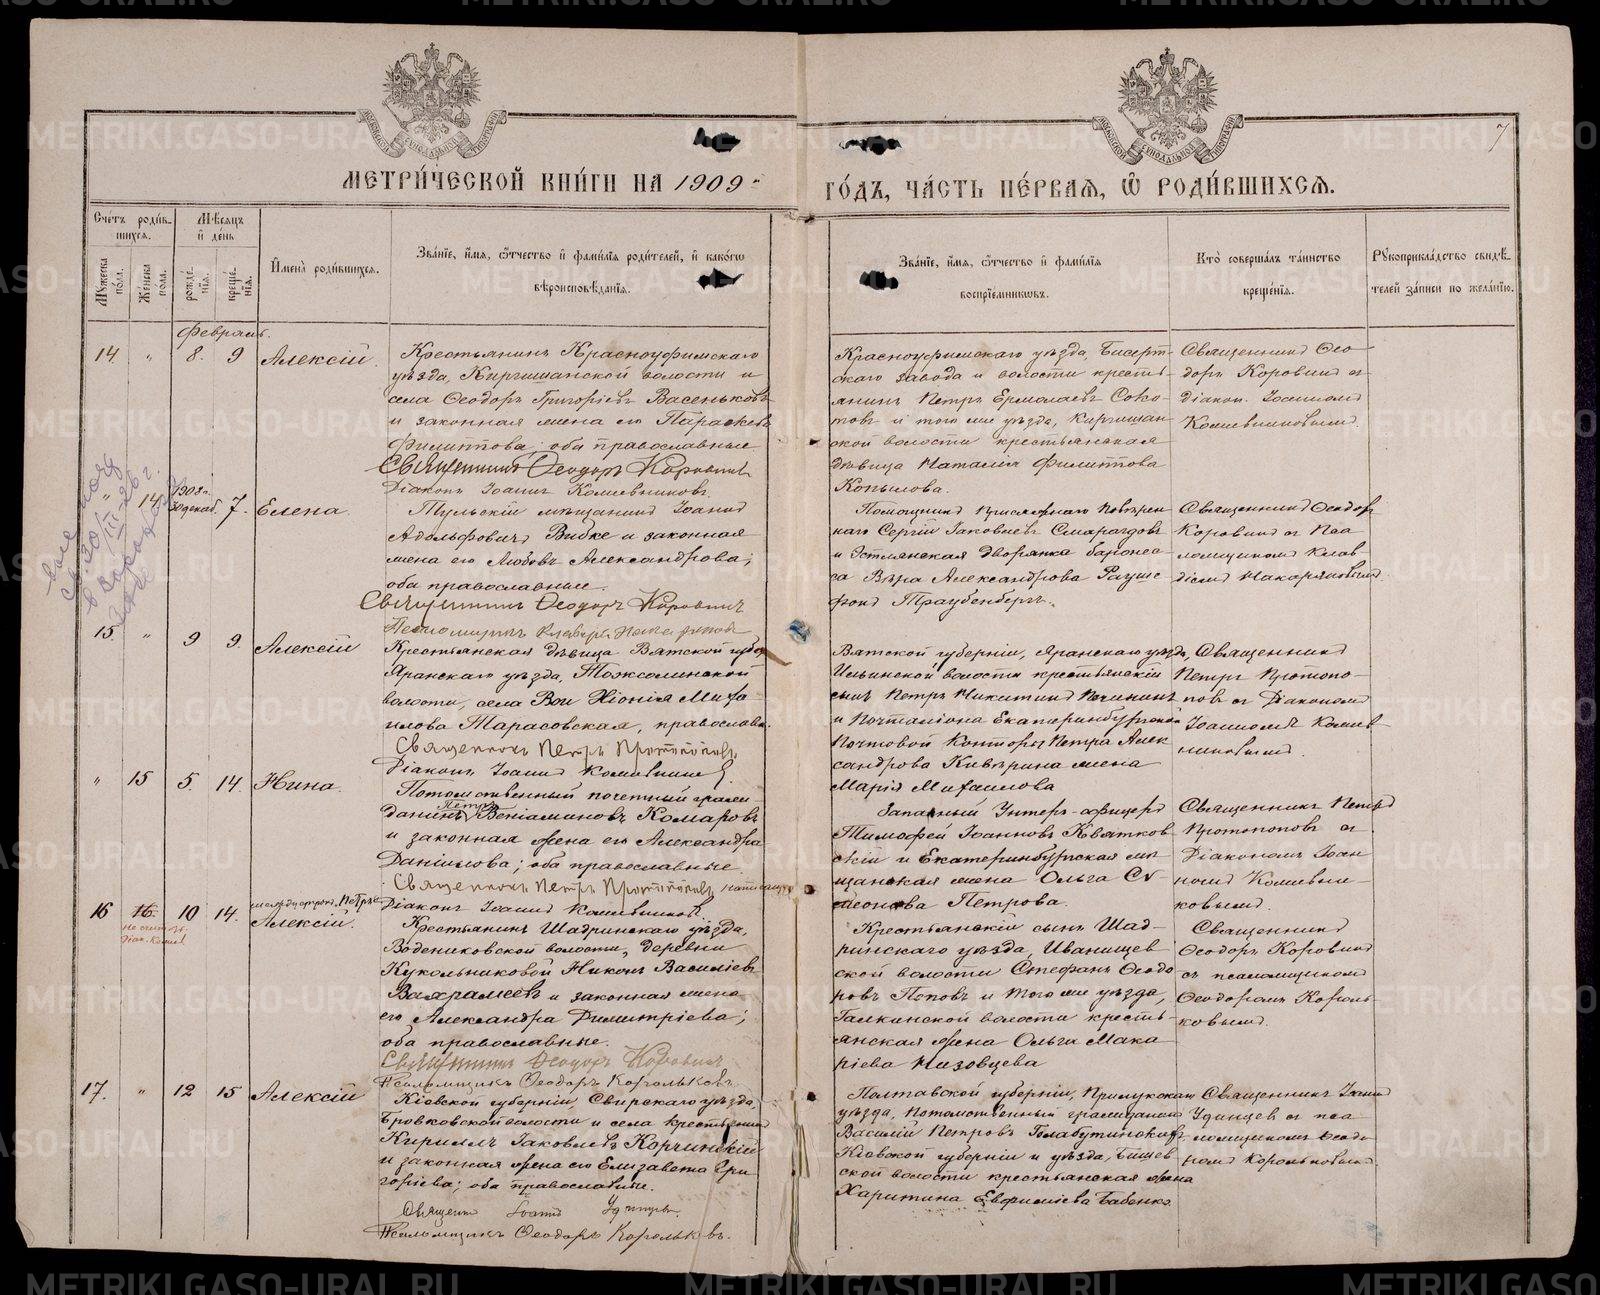 МЕТРИ́ЧЕСКОЙ КНИ́ГИ НА 1909
ГО́ДЪ, ЧА́СТЬ ПЕ́РВАѦ, Ѽ РОДИ́ВШИХСѦ.
7
Сче́тъ роди́вшихсѧ.
Мѣ́сѧцъ и҆ де́нь
Мꙋ́жеска по́ла.
Же́нска по́ла.
рожде́нїѧ.
креще́нїѧ.
И҆мена̀ роди́вшихсѧ.
Зва́нїе, и҆́мѧ, ѻ҆́тчество и҆ фами́лїѧ роди́телей, и҆ како́гѡ
вѣроисповѣ́данїѧ.
Зва́нїе, и҆́мѧ, ѻ҆́тчество и҆ фами́лїѧ
воспрїе́мникѡвъ.
Кто̀ соверша́лъ та́инство
креще́нїѧ.
Рꙋкоприкла́дство свидѣ́телей за́писи по жела́нїю.
Февраль.
14. " 8. 9 Алексій.
Крестьянинъ Красноуфимскаго
уѣзда, Киргишанской волости и
села Ѳеодоръ Григоріевъ Васеньковъ
и законная жена его Параскева
Филиппова; оба православные
Священникъ Ѳеодоръ Коровинъ
Діаконъ Іоаннъ Кошевниковъ.
Красноуфимскаго уѣзда, Бисерт-
скаго завода и волости кресть-
янинъ Петръ Ермолаевъ Соко-
ловъ и того же уѣзда, Киргишан-
ской волости крестьянская
дѣвица Наталія Филиппова
Копылова.
Священникъ Ѳео-
доръ Коровинъ съ
діакон. Іоанномъ
Кошевниковымъ.
" 14 1908 г. 30 декаб. 7. Елена.
Тульскій мѣщанинъ Іоаннъ
Адольфовичъ Вибке и законная
жена его Любовь Александрова;
оба православные.
Священникъ Ѳеодоръ Коровинъ
Помощникъ Присяжнаго Повѣрен-
наго Сергій Іаковлевъ Смарагдовъ
и Эстлянская дворянка баронес-
са Вѣра Александрова Раушъ
фонъ Траубенбергъ.
Священникъ Ѳеодоръ
Коровинъ съ Пса-
ломщикомъ Клав-
діемъ Макаряновымъ
15 " 9 9. Алексій
Крестьянская дѣвица Вятской губер.
Яранскаго уѣзда,
волости, села Вои Хіонія Миха
илова Тарасовская, православн.
Священникъ Петръ Протопоповъ
Діаконъ Іоаннъ Кошевников
Вятской губерніи, Яранскаго уѣзда,
Ильинской волости крестьянскій
сынъ Петръ Никитинъ Печинкинъ
и Почталіона Екатеринбургской
Почтовой Конторы Петра Алек
сандрова Киверина жена
Марія Михаилова
Священникъ
Петръ Протопо-
повъ съ Діакономъ
Іоанномъ Кошев-
никовымъ.
" 15 5. 14. Нина.
Потомственный почетный граж-
данинъ Петръ Веніаминовъ Комаровъ
и законная жена его Александра
Даніилова; оба православные
Священникъ Петръ Протопоповъ
Діаконъ Іоаннъ Кошевниковъ.
Запасный Унтеръ-офицеръ
Тимофей Іоанновъ Квятков
скій и Екатеринбургская мѣ-
щанская жена Ольга Си
меонова Петрова.
Священникъ Петръ
Протопоповъ съ
Діакономъ Іоан
номъ Кошевни
ковымъ.
16 16. 10 14. Алексій.
Крестьянинъ Шадринскаго уѣзда,
Водениковской волости, деревни
Кукольниковой Никонъ Василіевъ
Вахрамеевъ и законная жена
его Александра Димитріева;
оба православные.
Священникъ Ѳеодоръ Коровинъ
Псаломщикъ Ѳеодоръ Корольковъ.
Крестьянскій сынъ Шад-
ринскаго уѣзда, Иванищев
ской волости Стефанъ Ѳеодо
ровъ Поповъ и того же уѣзда,
Галкинской волости кресть-
янская жена Ольга Мака
ріева Низовцева
Священникъ
Ѳеодоръ Коровинъ
съ псаломщикомъ
Ѳеодоромъ Король-
ковымъ.
17. " 12 15 Алексій
Кіевской губерніи, Свирскаго уѣзда,
Бровковской волости и села крестьянинъ
Кириллъ Іаковлевъ Корчинскій
и законная жена его Елизавета Гри
горіева; оба православные.
Священникъ Іоаннъ Удинцевъ.
Псаломщикъ Ѳеодоръ Корольковъ.
Полтавской губерніи, Прилукскаго
уѣзда, потомственный гражданинъ
Василій Петровъ Голабутинскій,
Кіевской губерніи и уѣзда, Бишев
ской волости крестьянская жена
Харитина Евфиміева Бабенко.
Священникъ Іоаннъ
Удинцевъ съ пса
ломщикомъ Ѳеодо
ромъ Корольковымъ.
METRIKI.GASO-URAL.RU